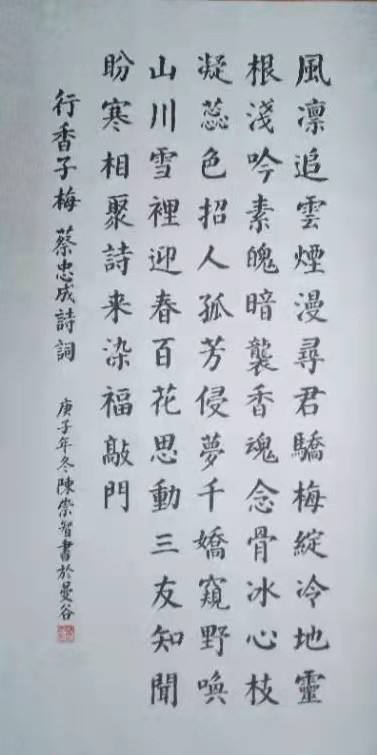 風凛追雲煙漫尋君驕梅綻冷地靈
根淺吟素魄暗襲香魂念骨冰心枝
凝蕊色招人孤芳侵夢千嬌窺野喚
山川雪裡迎春百花思動三友知聞
盼寒相聚詩来染福敲門
行香子梅 蔡忠成詩詞
庚子年冬陳崇智書於曼谷